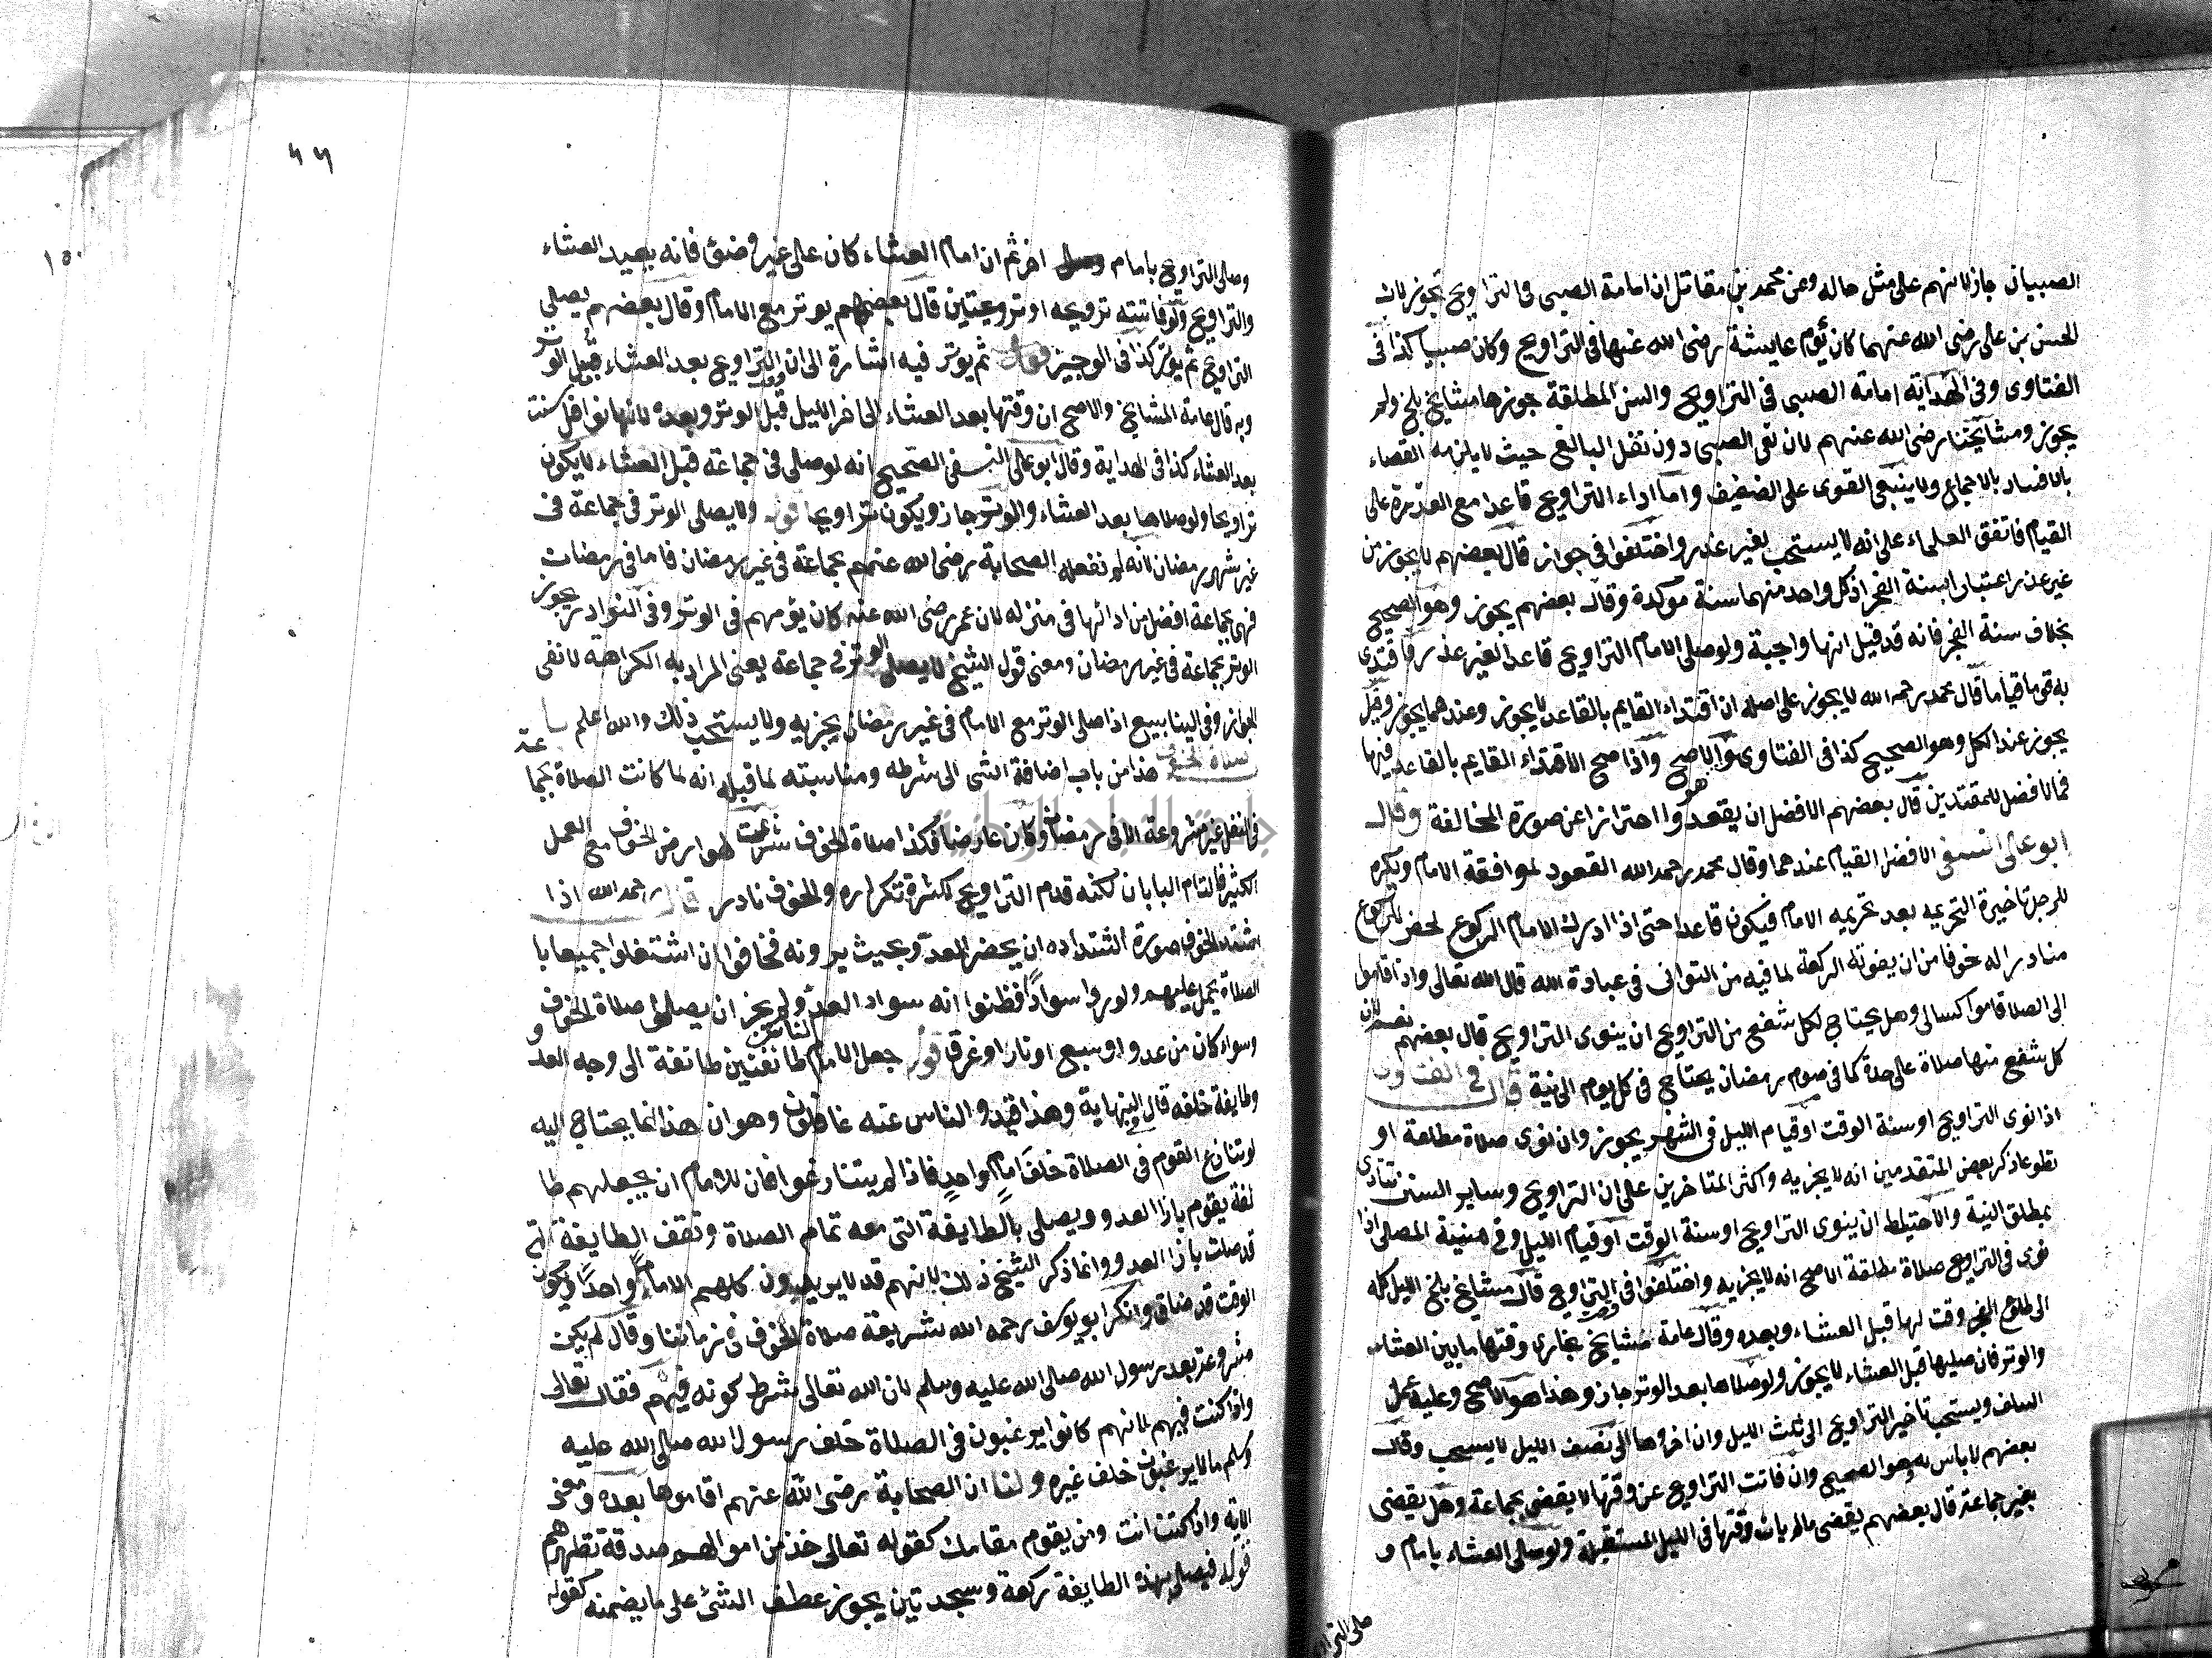 الصبيان جاز لانهم على مثل حاله وعن محمد بن مقاتل ان امامة الصبي في التراويح تجوز لان
الحسن بن علي رضى الله عنهما كان يؤم عايشة رضى الله عنها في التراويح وكان صبيا كذا في
الفتاوى وفي الهداية امامة الصبى في التراويح والسنن المطلقة جوزها مشايخ بلخ ولم
يجوز ومشايخنا رضى الله عنهم لان نفل الصبى دون نفل البالغ حيث لا يلزمه القضاء
بالافساد بالاجماع ولا ينبني القوى على الضعيف واما اداء التراويح قاعدا مع القدرة على
القيام فاتفق العلماء على انه لا يستحب بغير عذر واختلفوا في جوازه قال بعضهم لا يجوز من
غير عذر اعتبارا بسنة الفجر اذ كل واحد منهما سنة موكدة وقال بعضهم يجوز وهو الصحيح
بخلاف سنة الفجر فانه قد قيل انها واجبة ولو صلى الامام التراويح قاعدا لغير عذر فاقتدى
به قوما قياما قال محمد رحمه الله لا يجوز على اصله ان اقتداء القايم بالقاعد لا يجوز وعندهما يجوز وقيل
يجوز عند الكل وهو الصحيح كذا في الفتاوى والاصح واذا صح الاقتداء القايم بالقاعد فيها
فما الافضل للمقتدين قال بعضهم الافضل ان يقعدوا احترازا عن صورة المخالفة وقال
ابو على النسفى الافضل القيام عندهما وقال محمد رحمه الله القعود لموافقة الامام ويكره
للرجل تاخيرة التحريمه بعد تحريمه الامام فيكون قاعدا حتى اذا ادرك الامام الركوع لحض للركوع
مبادراله خوفا من ان يفوته الركعة لما فيه من التوانى في عبادة الله قال الله تعالى واذا قاموا
الى الصلاة قاموا كسالى وهل يحتاج لكل شفع من التراويح ان ينوى التراويح قال بعضهم نعم لان
كل شفع منها صلاة على حدة كما في صوم رمضان يحتاج في كل يوم الى نية قال في الفتاوى
اذا نوى التراويح او سنة الوقت او قيام الليل في الشهر يجوز وان نوى صلاة مطلقة او
تطوعا ذكر بعض المتقدمين انه لا يجزيه واكثر المتاخرين على ان التراويح وساير السنن تتادى
بمطلق النية والاحتياط ان ينوى التراويح او سنة الوقت او قيام الليل وفي منية المصلى اذا
نوى في التراويح صلاة مطلقة الاصح انه لا يجزيه واختلفوا في وقت التراويح قال مشايخ بلخ الليل كله
الى طلوع الفجر وقت لها قبل العشاء وبعده وقال عامة مشايخ بخارى وقتها ما بين العشاء
والوتر فان صليها قبل العشاء لا يجوز ولو صلاها بعد الوتر جاز وهذا هو الاصح وعليه عمل
السلف ويستحب تاخير التراويح الى ثلث الليل وان اخروها الى نصف الليل لا يستحب وقال
بعضهم لا باس به وهو الصحيح وان فاتت التراويح عن وقتها لا يقضى بجماعة وهل يقضى
بغير جماعة قال بعضهم يقضى مالم يات وقتها في الليل المستقبلة ولو صلى العشاء بامام و
صلى الترا
٤٦
١٥٠
وصلى التراويح بامام اخر ثم ان امام العشاء كان على غير وضؤ فانه يعيد العشاء
والتراويح ولو فاتته ترويحه او ترويحتين قال بعضهم يوتر مع الامام وقال بعضهم يصلى
التراويح ثم يوتر كذا في الوجيز قوله ثم يوتر فيه اشارة الى ان وقت التراويح بعد العشاء قبل الوتر
وبه قال عامة المشايخ والاصح ان وقتها بعد العشاء الى اخر الليل قبل الوتر وبعده لانها نوافل سنت
بعد العشاء كذا في الهداية وقال ابو على النسفى الصحيح انه لو صلى في جماعة قبل العشاء لا يكون
تراويحا ولو صلاها بعد العشاء والوتر جاز ويكون تراويحا قوله ولا يصلى الوتر في جماعة في
غير شهر رمضان لانه لم تفعله الصحابة رضى الله عنهم بجماعة في غير رمضان فاما في رمضان
فهى بجماعة افضل من ادائها في منزله لان عمر رضى الله عنه كان يؤمهم في الوتر وفي النوادر يجوز
الوتر بجماعة في غير رمضان ومعنى قول الشيخ لا يصلى الوتر في جماعة يعنى المراد به الكراهة لا نفى
الجواز وفي الينابيع اذا صلى الوتر مع الامام في غير رمضان يجزيه ولا يستحب ذلك والله اعلم باب
صلاة الخوف هذا من باب اضافة الشى الى شرطه ومناسبته لما قبله انه لما كانت الصلاة بجماعة
في النفل غير مشروعة الا في رمضان وكان عارضا فكذا صلاة الخوف شرعت لعوارض الخوف مع العمل
الكثير فالتام البابان لكنه قدم التراويح لكثرة تكراره والخوف نادر قال رحمه الله اذا
اشتد الخوف صورة اشتداده ان يحضر العدو بحيث يرونه فخافوا ان اشتغلوا جميعا با
الصلاة يحمل عليهم ولو راوا سوادًا فظنوا انه سواد العدو لم يجز ان يصلوا صلاة الخوف
وسواء كان من عدو او سبع او نارا او غرق قوله جعل الامام الناس طائفتين طائفة الى وجه العدو
وطايفة خلفه قال في النهاية وهذا قيد والناس عنه غافلون وهو ان هذا انما يحتاج اليه
لو تنازع القوم في الصلاة خلف امامٍ واحدٍ فاذا لم يتنازعوا فان للامام ان يجعلهم طا
ئفة يقوم بازا العدو ويصلى بالطايفة التى معه تمام الصلاة وتقف الطايفة التى
قد صلت بازا العدو وانما ذكر الشيخ ذلك لانهم قد لا يريدون كلهم الا اماما واحدًا ويكون
الوقت قد ضاق وانكر ابو يوسف رحمه الله شريعة صلاة الخوف في زماننا وقال لم يكن
مشروعة بعد رسول الله صلى الله عليه وسلم لان الله تعالى شرط كونه فيهم فقال تعالى
واذا كنت فيهم لانهم كانوا يرغبون في الصلاة خلف رسول الله صلى الله عليه
وسلم مالا يرغبون خلف غيره ولنا ان الصحابة رضى الله عنهم اقاموها بعده ومعنى
الاية واذا كنت انت ومن يقوم مقامك كقوله تعالى خذ من اموالهم صدقة تطهرهم
قوله فيصلى بهذه الطايفة ركعة وسجدتين يجوز عطف الشئ على ما يضمنه كقوله
جامعة النجاح الوطنية